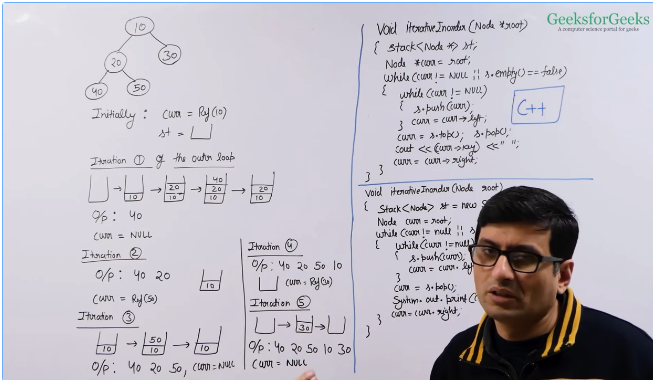 GeeksforGeeks
A computer science portal for geeks
10
20
30
40
50
Initially: curr = Ref(10)
st =
Itration ① of the outer loop
10
20
10
40
20
10
20
10
O/p: 40
curr = NULL
Itration ②
O/p: 40 20
10
curr = Ref(50)
Itration ③
10
50
10
10
O/p: 40 20 50, curr=NULL
Itration ④
O/p: 40 20 50 10
curr = Ref(30)
Itration ⑤
30
O/p: 40 20 50 10 30
curr = NULL
Void iterativeInorder (Node *root)
{ stack<Node *> st;
Node *curr = root;
while (curr != NULL || s.empty() == false)
{ while (curr != NULL)
{ s.push(curr);
curr = curr→left;
}
curr = s.top(); s.pop();
cout << (curr→key) << " ";
curr = curr→right;
} }
C++
Void iterativeInorder (Node root)
{ Stack<Node> st = new
Node curr = root;
while (curr != null || s
{ while (curr != null)
{ s.push(curr);
curr = curr.left
}
curr = s.pop();
System.out.print (
curr = curr.right;
}
}